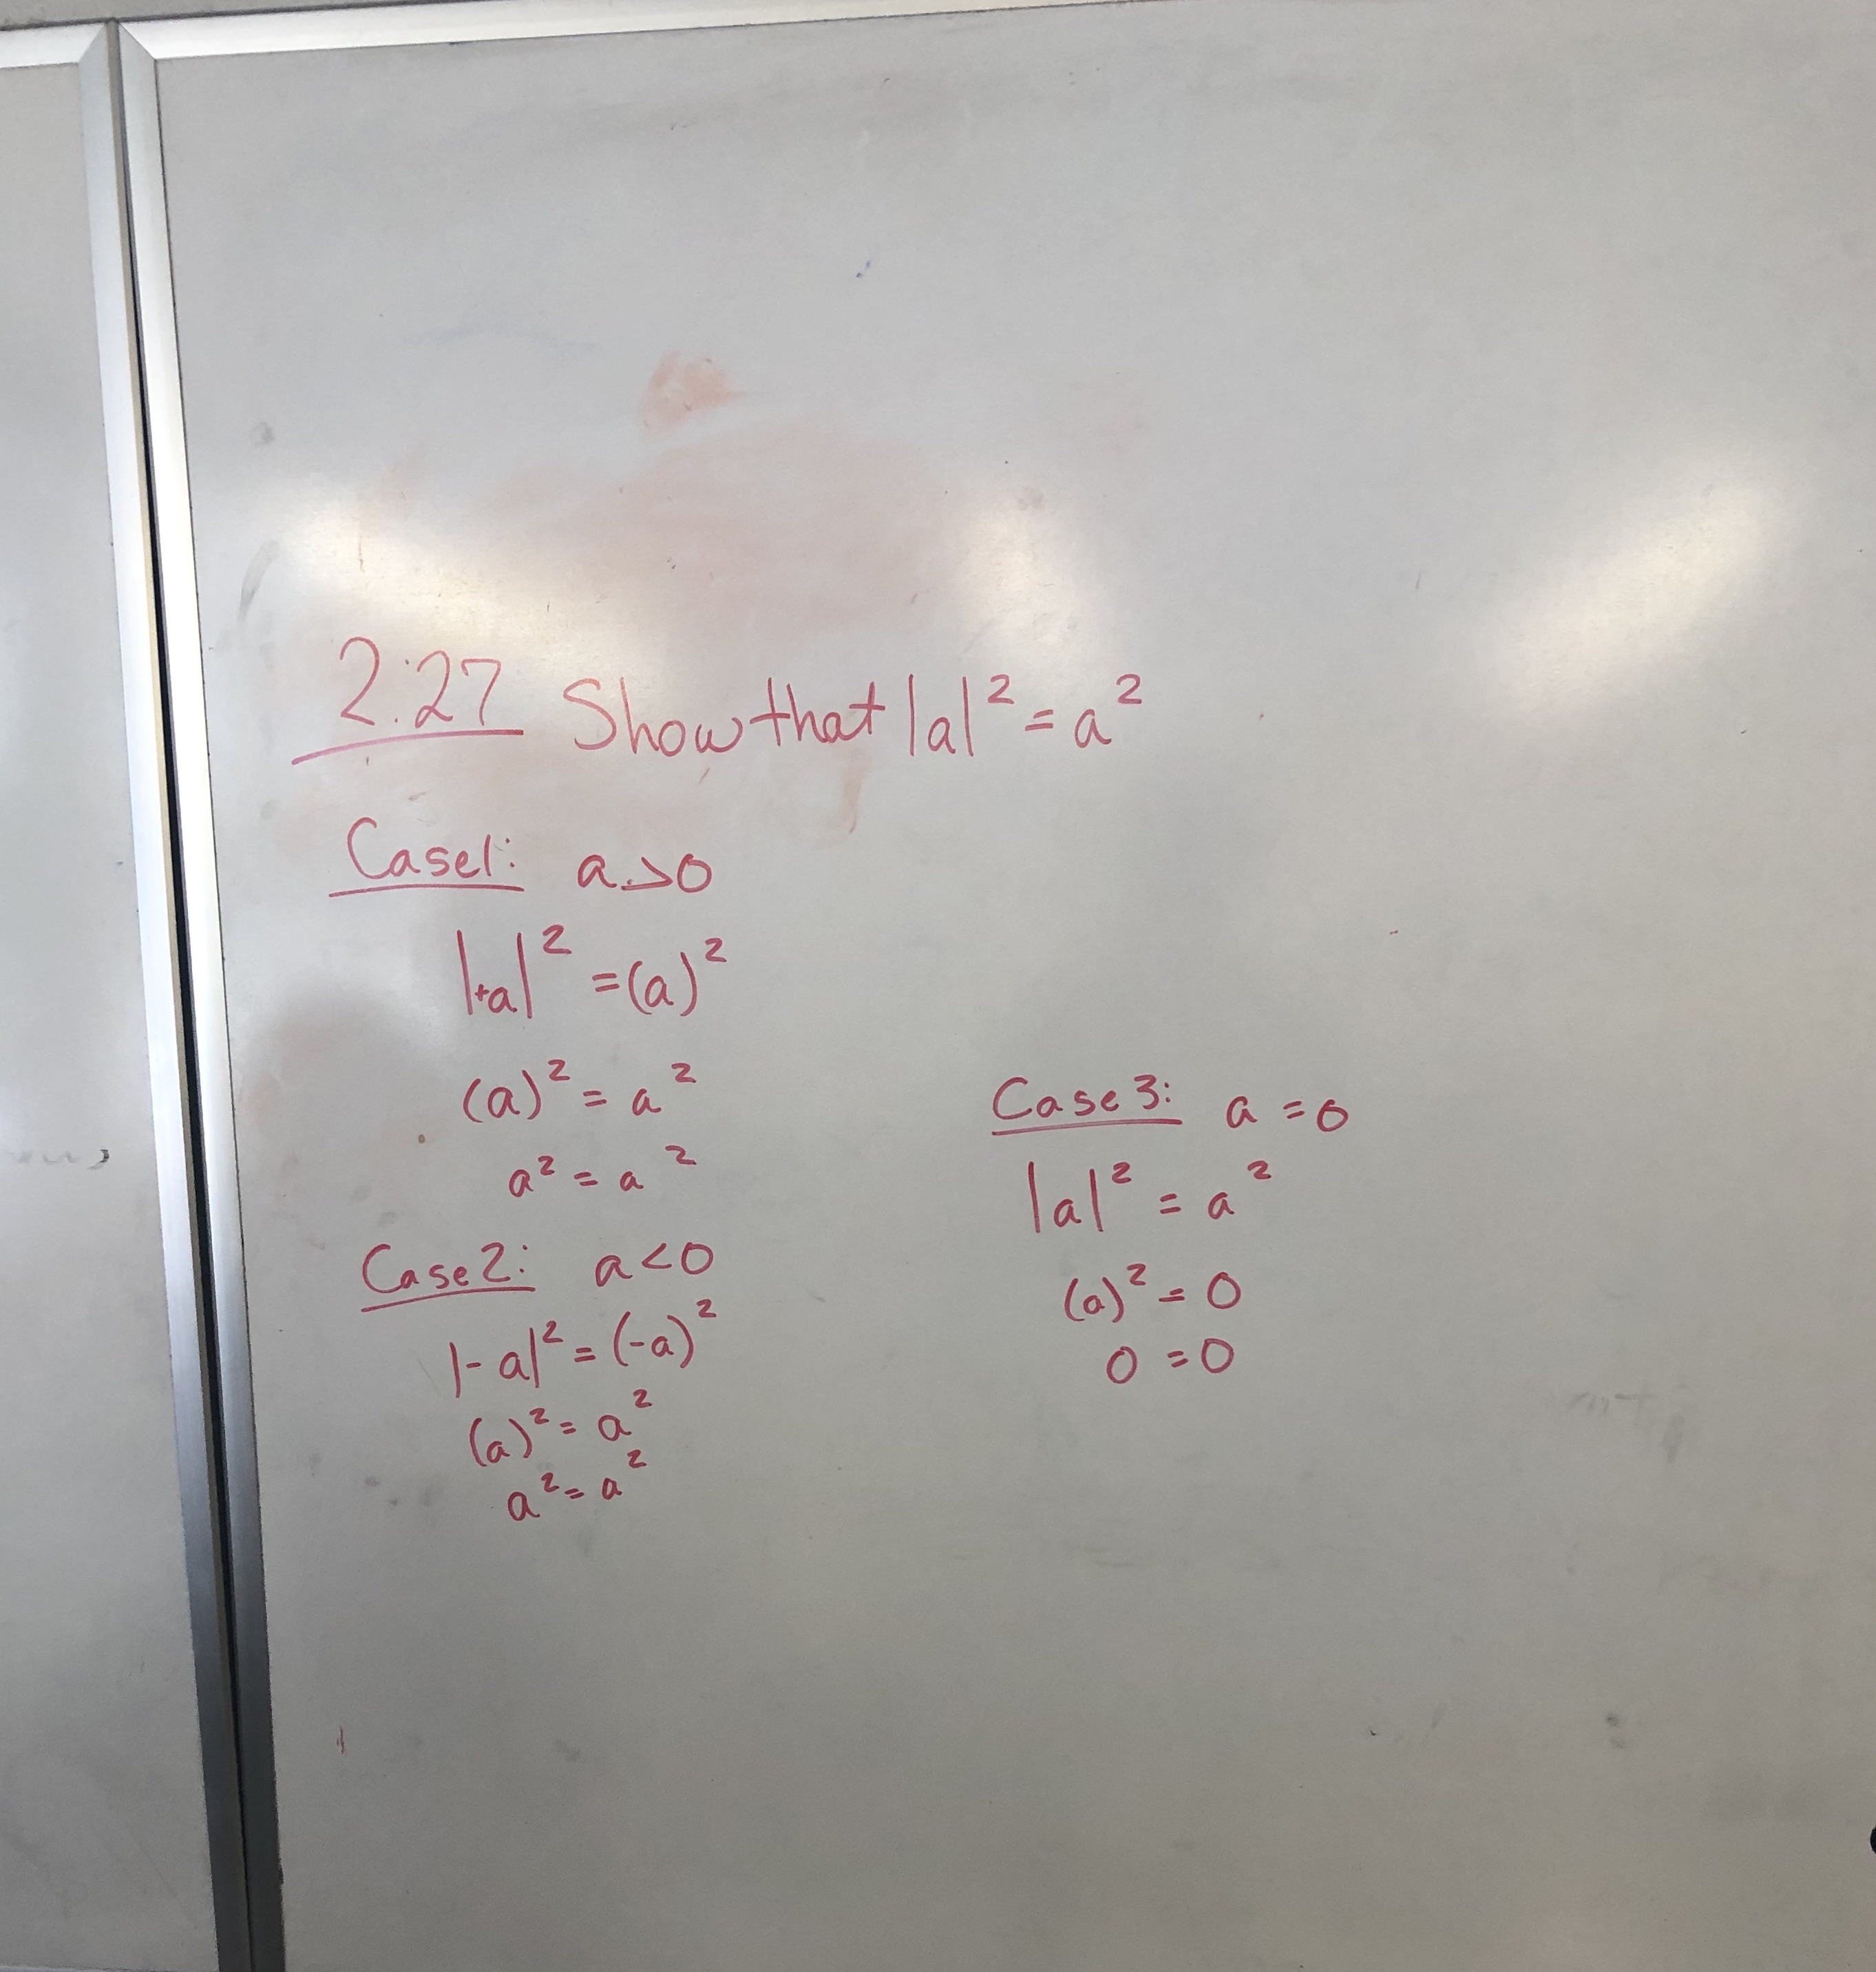 2.27 Show that |a|² = a²
Case1: a>0
|+a|² = (a)²
(a)² = a²
a² = a²
Case2: a<0
|-a|² = (-a)²
(a)² = a²
a² = a²
Case3: a = 0
|a|² = a²
(a)² = 0
0 = 0